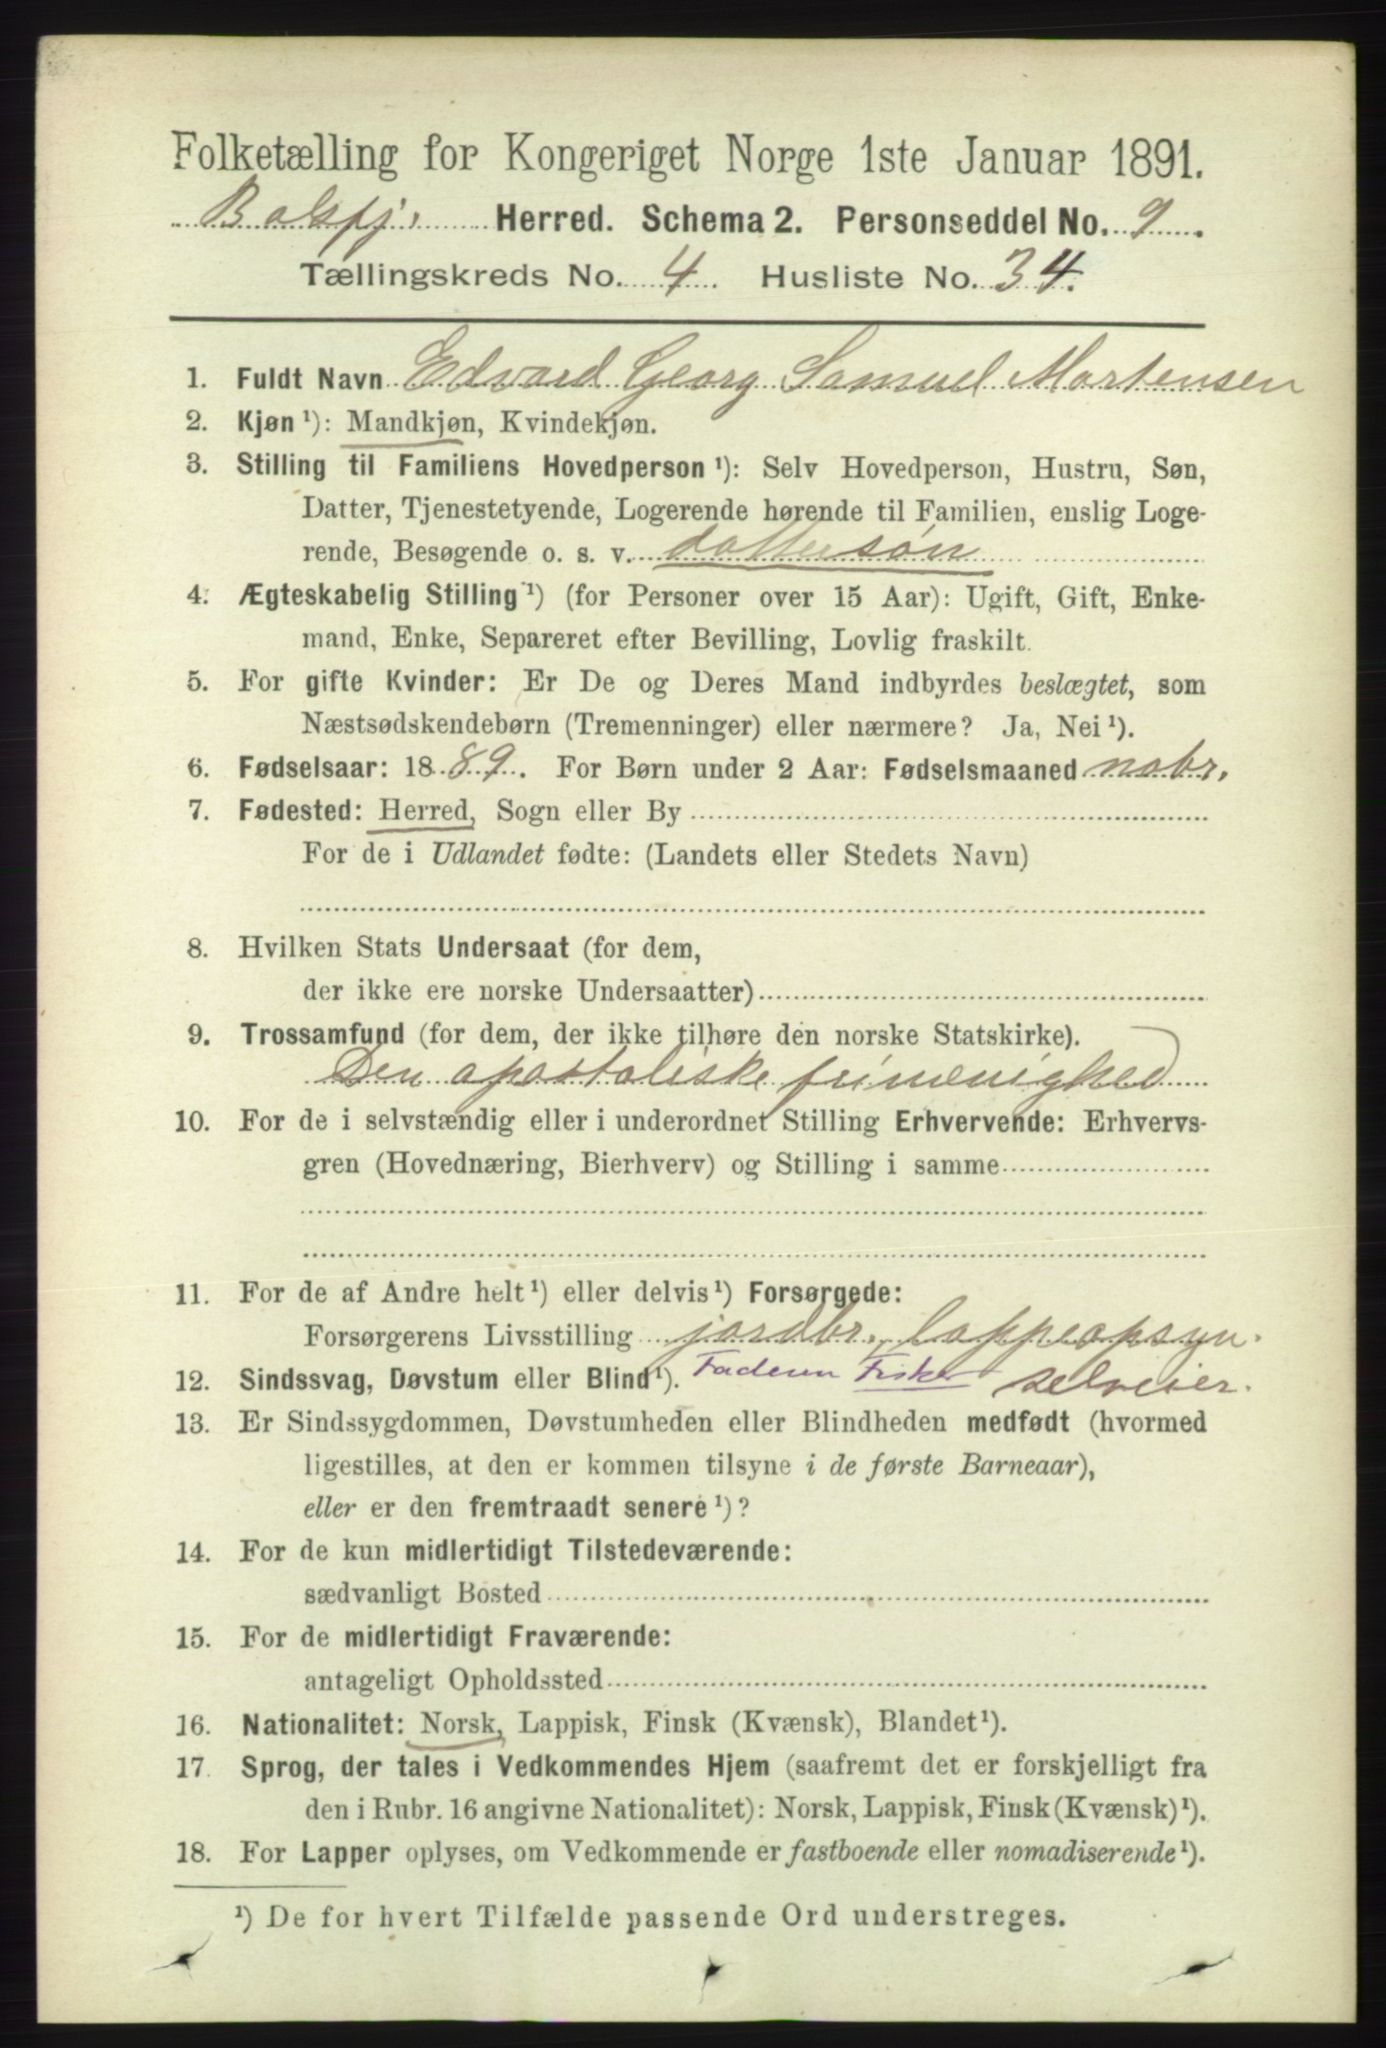 Folketælling for Kongeriget Norge 1ste Januar 1891.
Balsfj. Herred. Schema 2. Personseddel No. 9
Tællingskreds No. 4 Husliste No. 34.
1. Fuldt Navn Edvard Georg Samuel Mortensen
2. Kjøn ¹): Mandkjøn, Kvindekjøn.
3. Stilling til Familiens Hovedperson ¹): Selv Hovedperson, Hustru, Søn,
Datter, Tjenestetyende, Logerende hørende til Familien, enslig Loge-
rende, Besøgende o. s. v. dattersøn
4. Ægteskabelig Stilling ¹) (for Personer over 15 Aar): Ugift, Gift, Enke-
mand, Enke, Separeret efter Bevilling, Lovlig fraskilt.
5. For gifte Kvinder: Er De og Deres Mand indbyrdes beslægtet, som
Næstsødskendebørn (Tremenninger) eller nærmere? Ja, Nei ¹).
6. Fødselsaar: 1889. For Børn under 2 Aar: Fødselsmaaned nobr.
7. Fødested: Herred, Sogn eller By
For de i Udlandet fødte: (Landets eller Stedets Navn)
8. Hvilken Stats Undersaat (for dem,
der ikke ere norske Undersaatter)
9. Trossamfund (for dem, der ikke tilhøre den norske Statskirke).
Den apostoliske frimenighed
10. For de i selvstændig eller i underordnet Stilling Erhvervende: Erhvervs-
gren (Hovednæring, Bierhverv) og Stilling i samme
11. For de af Andre helt ¹) eller delvis ¹) Forsørgede:
Forsørgerens Livsstilling jordbr., lappeopsyn.
12. Sindssvag, Døvstum eller Blind ¹). Faderen Fisker selveier.
13. Er Sindssygdommen, Døvstumheden eller Blindheden medfødt (hvormed
ligestilles, at den er kommen tilsyne i de første Barneaar),
eller er den fremtraadt senere ¹)?
14. For de kun midlertidigt Tilstedeværende:
sædvanligt Bosted
15. For de midlertidigt Fraværende:
antageligt Opholdssted
16. Nationalitet: Norsk, Lappisk, Finsk (Kvænsk), Blandet ¹).
17 Sprog, der tales i Vedkommendes Hjem (saafremt det er forskjelligt fra
den i Rubr. 16 angivne Nationalitet): Norsk, Lappisk, Finsk (Kvænsk) ¹).
18. For Lapper oplyses, om Vedkommende er fastboende eller nomadiserende ¹).
¹) De for hvert Tilfælde passende Ord understreges.